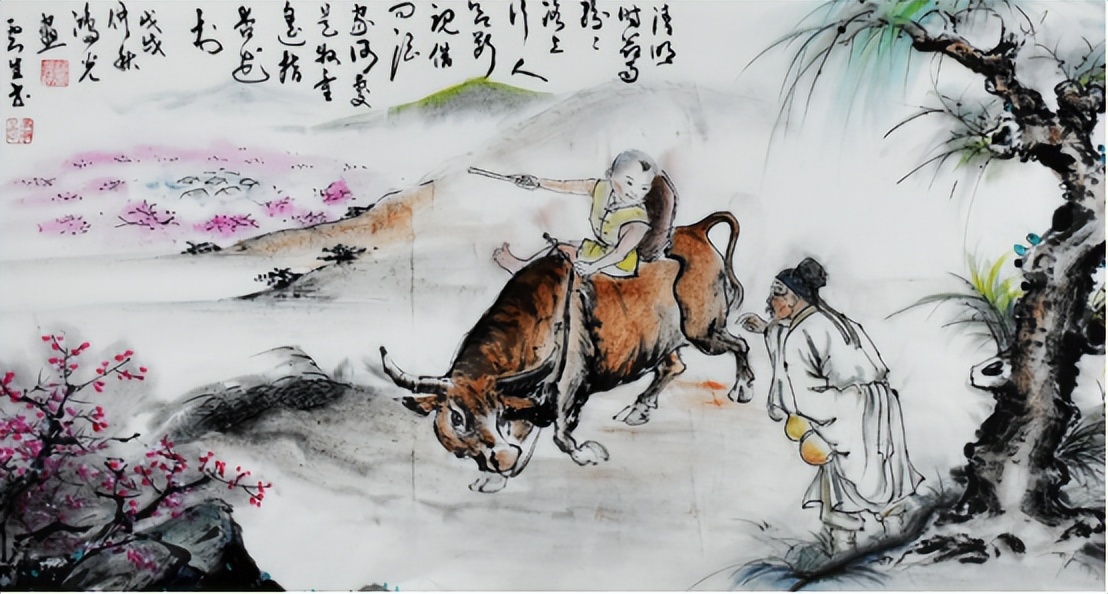 清明
时节雨
纷〻
路上
行人
欲断
魂借
问酒
家何处
是牧童
遥指
杏花
村
戊戌
仲秋
鸿光
画
云生书